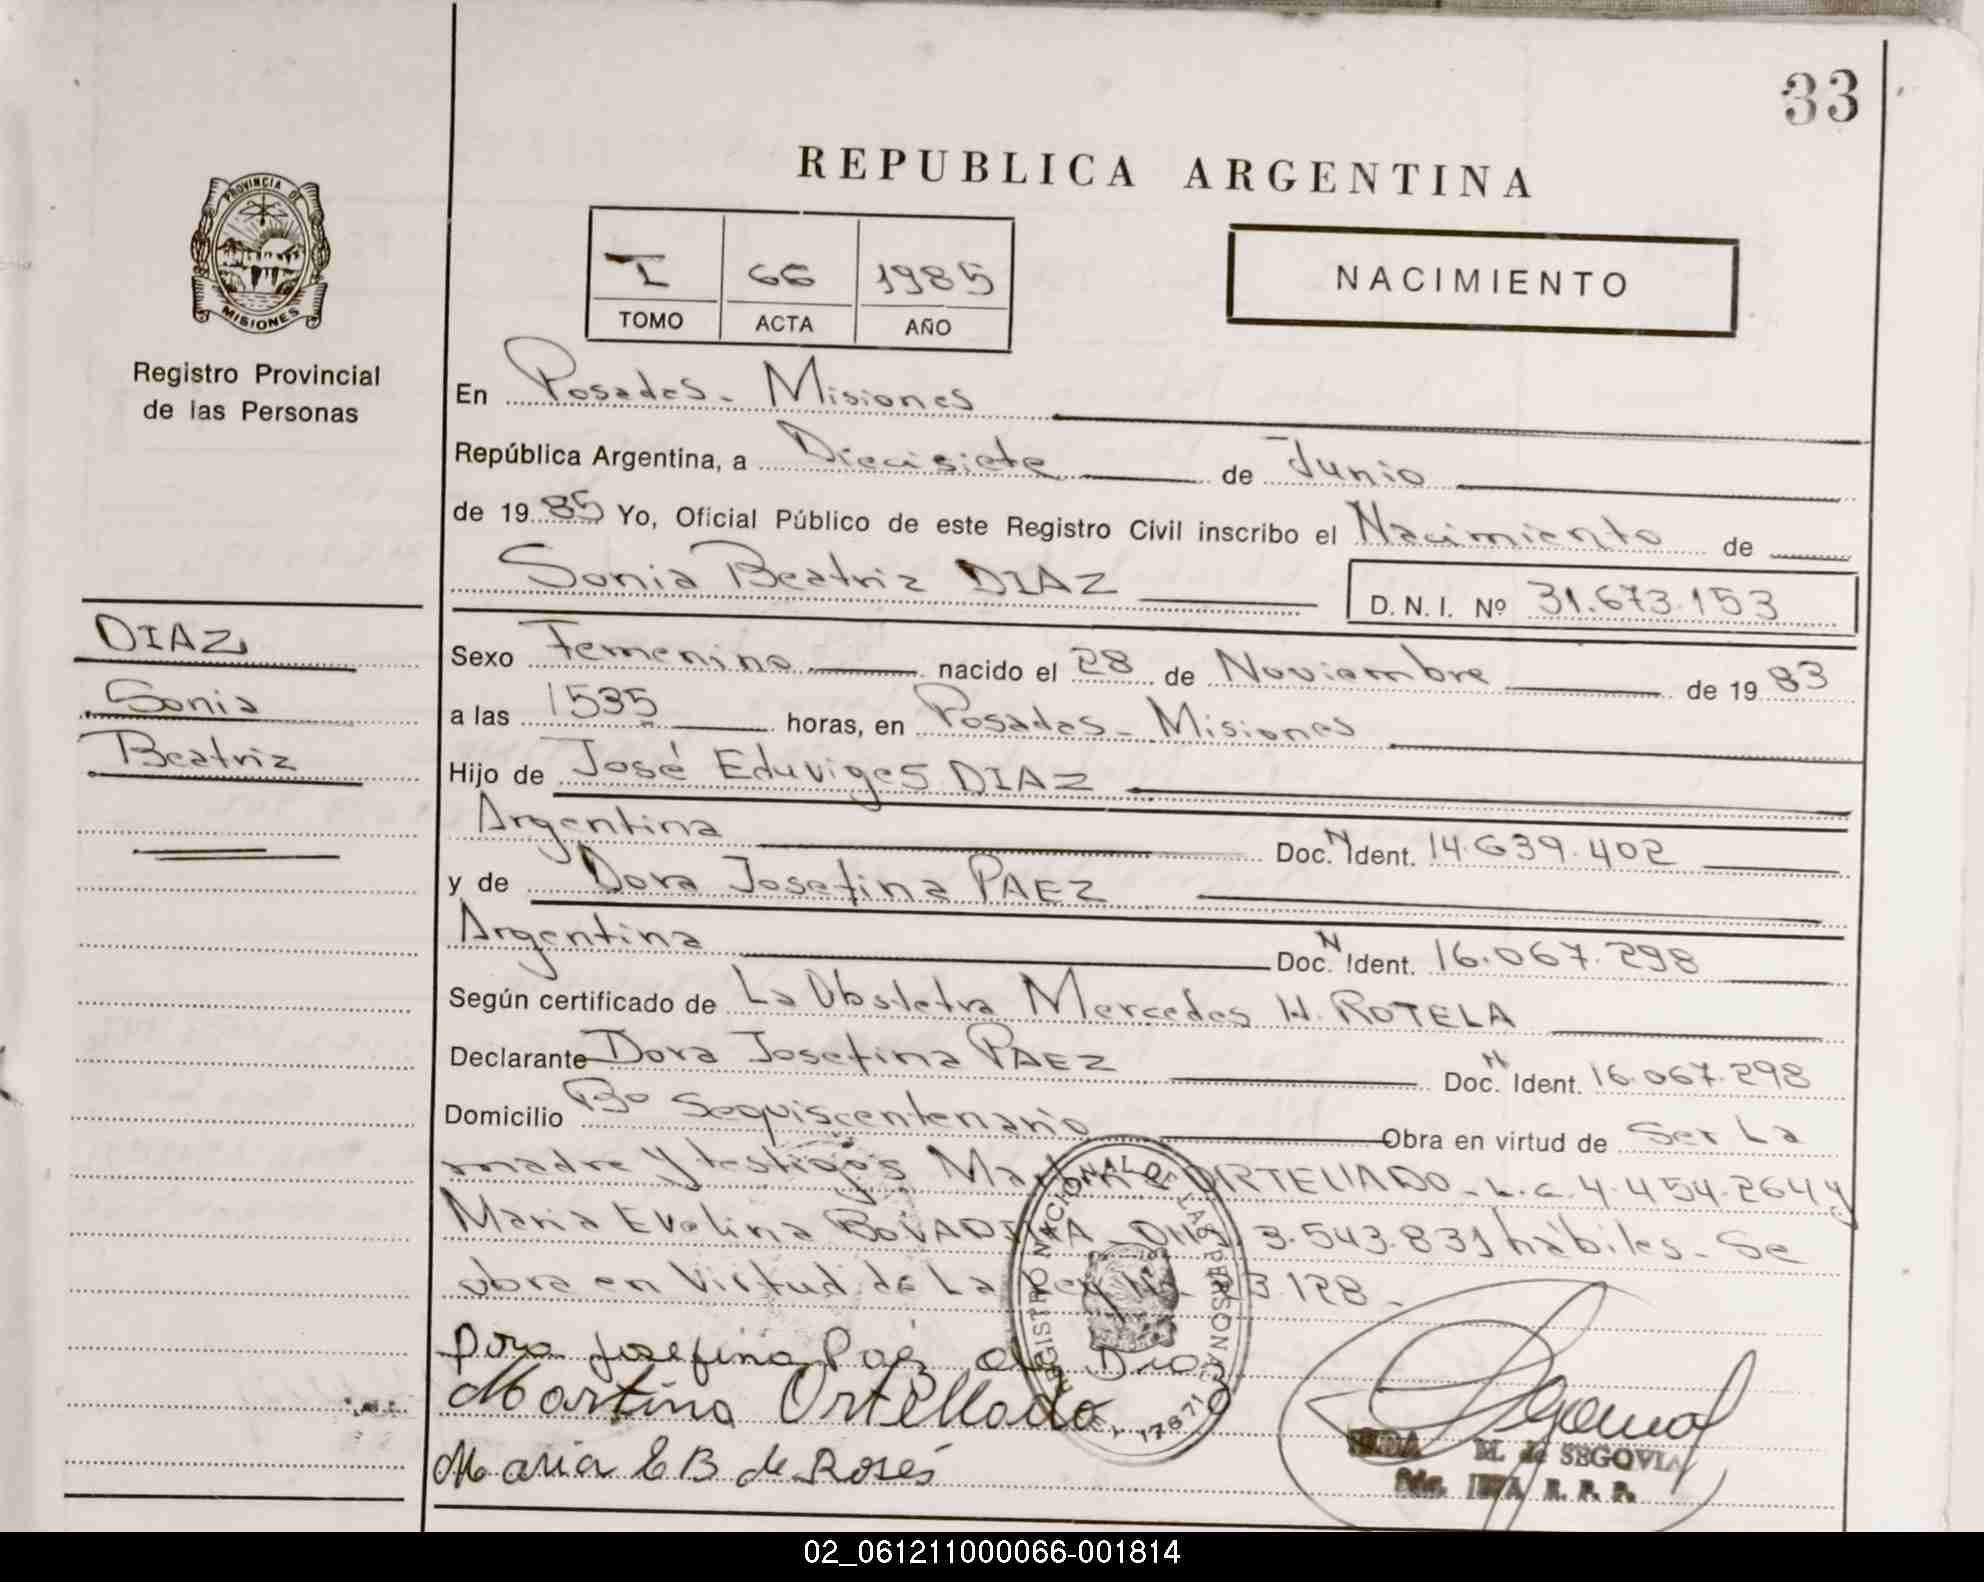 33
REPUBLICA ARGENTINA
PROVINCIA DE
MISIONES
Registro Provincial
de las Personas
I 66 1985
TOMO ACTA AÑO
NACIMIENTO
En Posadas - Misiones
República Argentina, a Diecisiete de Junio
de 1985 Yo, Oficial Público de este Registro Civil inscribo el Nacimiento de
Sonia Beatriz DIAZ D.N.I. Nº 31.673.153
DIAZ
Sonia
Beatriz
Sexo Femenino nacido el 28 de Noviembre de 1983
a las 1535 horas, en Posadas - Misiones
Hijo de José Eduviges DIAZ
Argentina Doc. N Ident. 14.639.402
y de Dora Josefina PAEZ
Argentina Doc. N Ident. 16.067.298
Según certificado de La Obstetra Mercedes H. ROTELA
Declarante Dora Josefina PAEZ Doc. N Ident. 16.067.298
Domicilio Bº Sequiscentenario Obra en virtud de Ser La
madre y testigos Martina ORTELLADO - L.C. 4.454.264 y
Maria Evelina BOVADILLA - DNI. 3.543.831 habiles - Se
obra en Virtud de La Ley Nº 23.128 -
REGISTRO NACIONAL DE LAS PERSONAS
17671
Dora Josefina Paez de Diaz
Martina Ortellado
Maria E B de Rosés
M. de SEGOVIA
R. P. P.
02_061211000066-001814